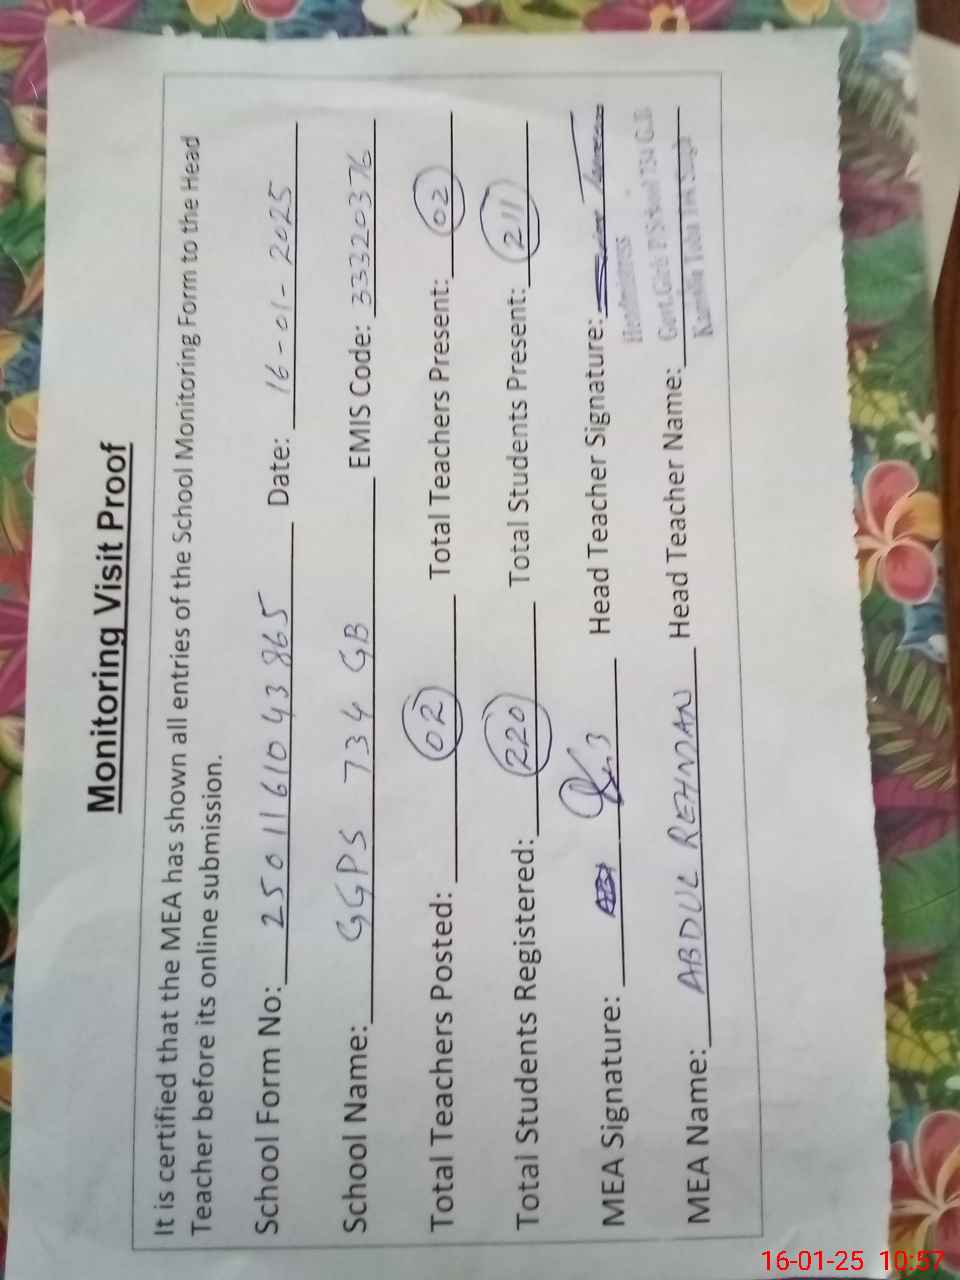 Monitoring Visit Proof
It is certified that the MEA has shown all entries of the School Monitoring Form to the Head
Teacher before its online submission.
School Form No: 25011610 43865 Date: 16-01-2025
School Name: GGPS 734 GB EMIS Code: 33320376
Total Teachers Posted: 02 Total Teachers Present: 02
Total Students Registered: 220 Total Students Present: 211
MEA Signature: Head Teacher Signature:
Headmistress
Govt. Girls P School 734 G.B
MEA Name: ABDUL REHMAN Head Teacher Name:
Kamalia Toba Tek Singh
16-01-25 10:57